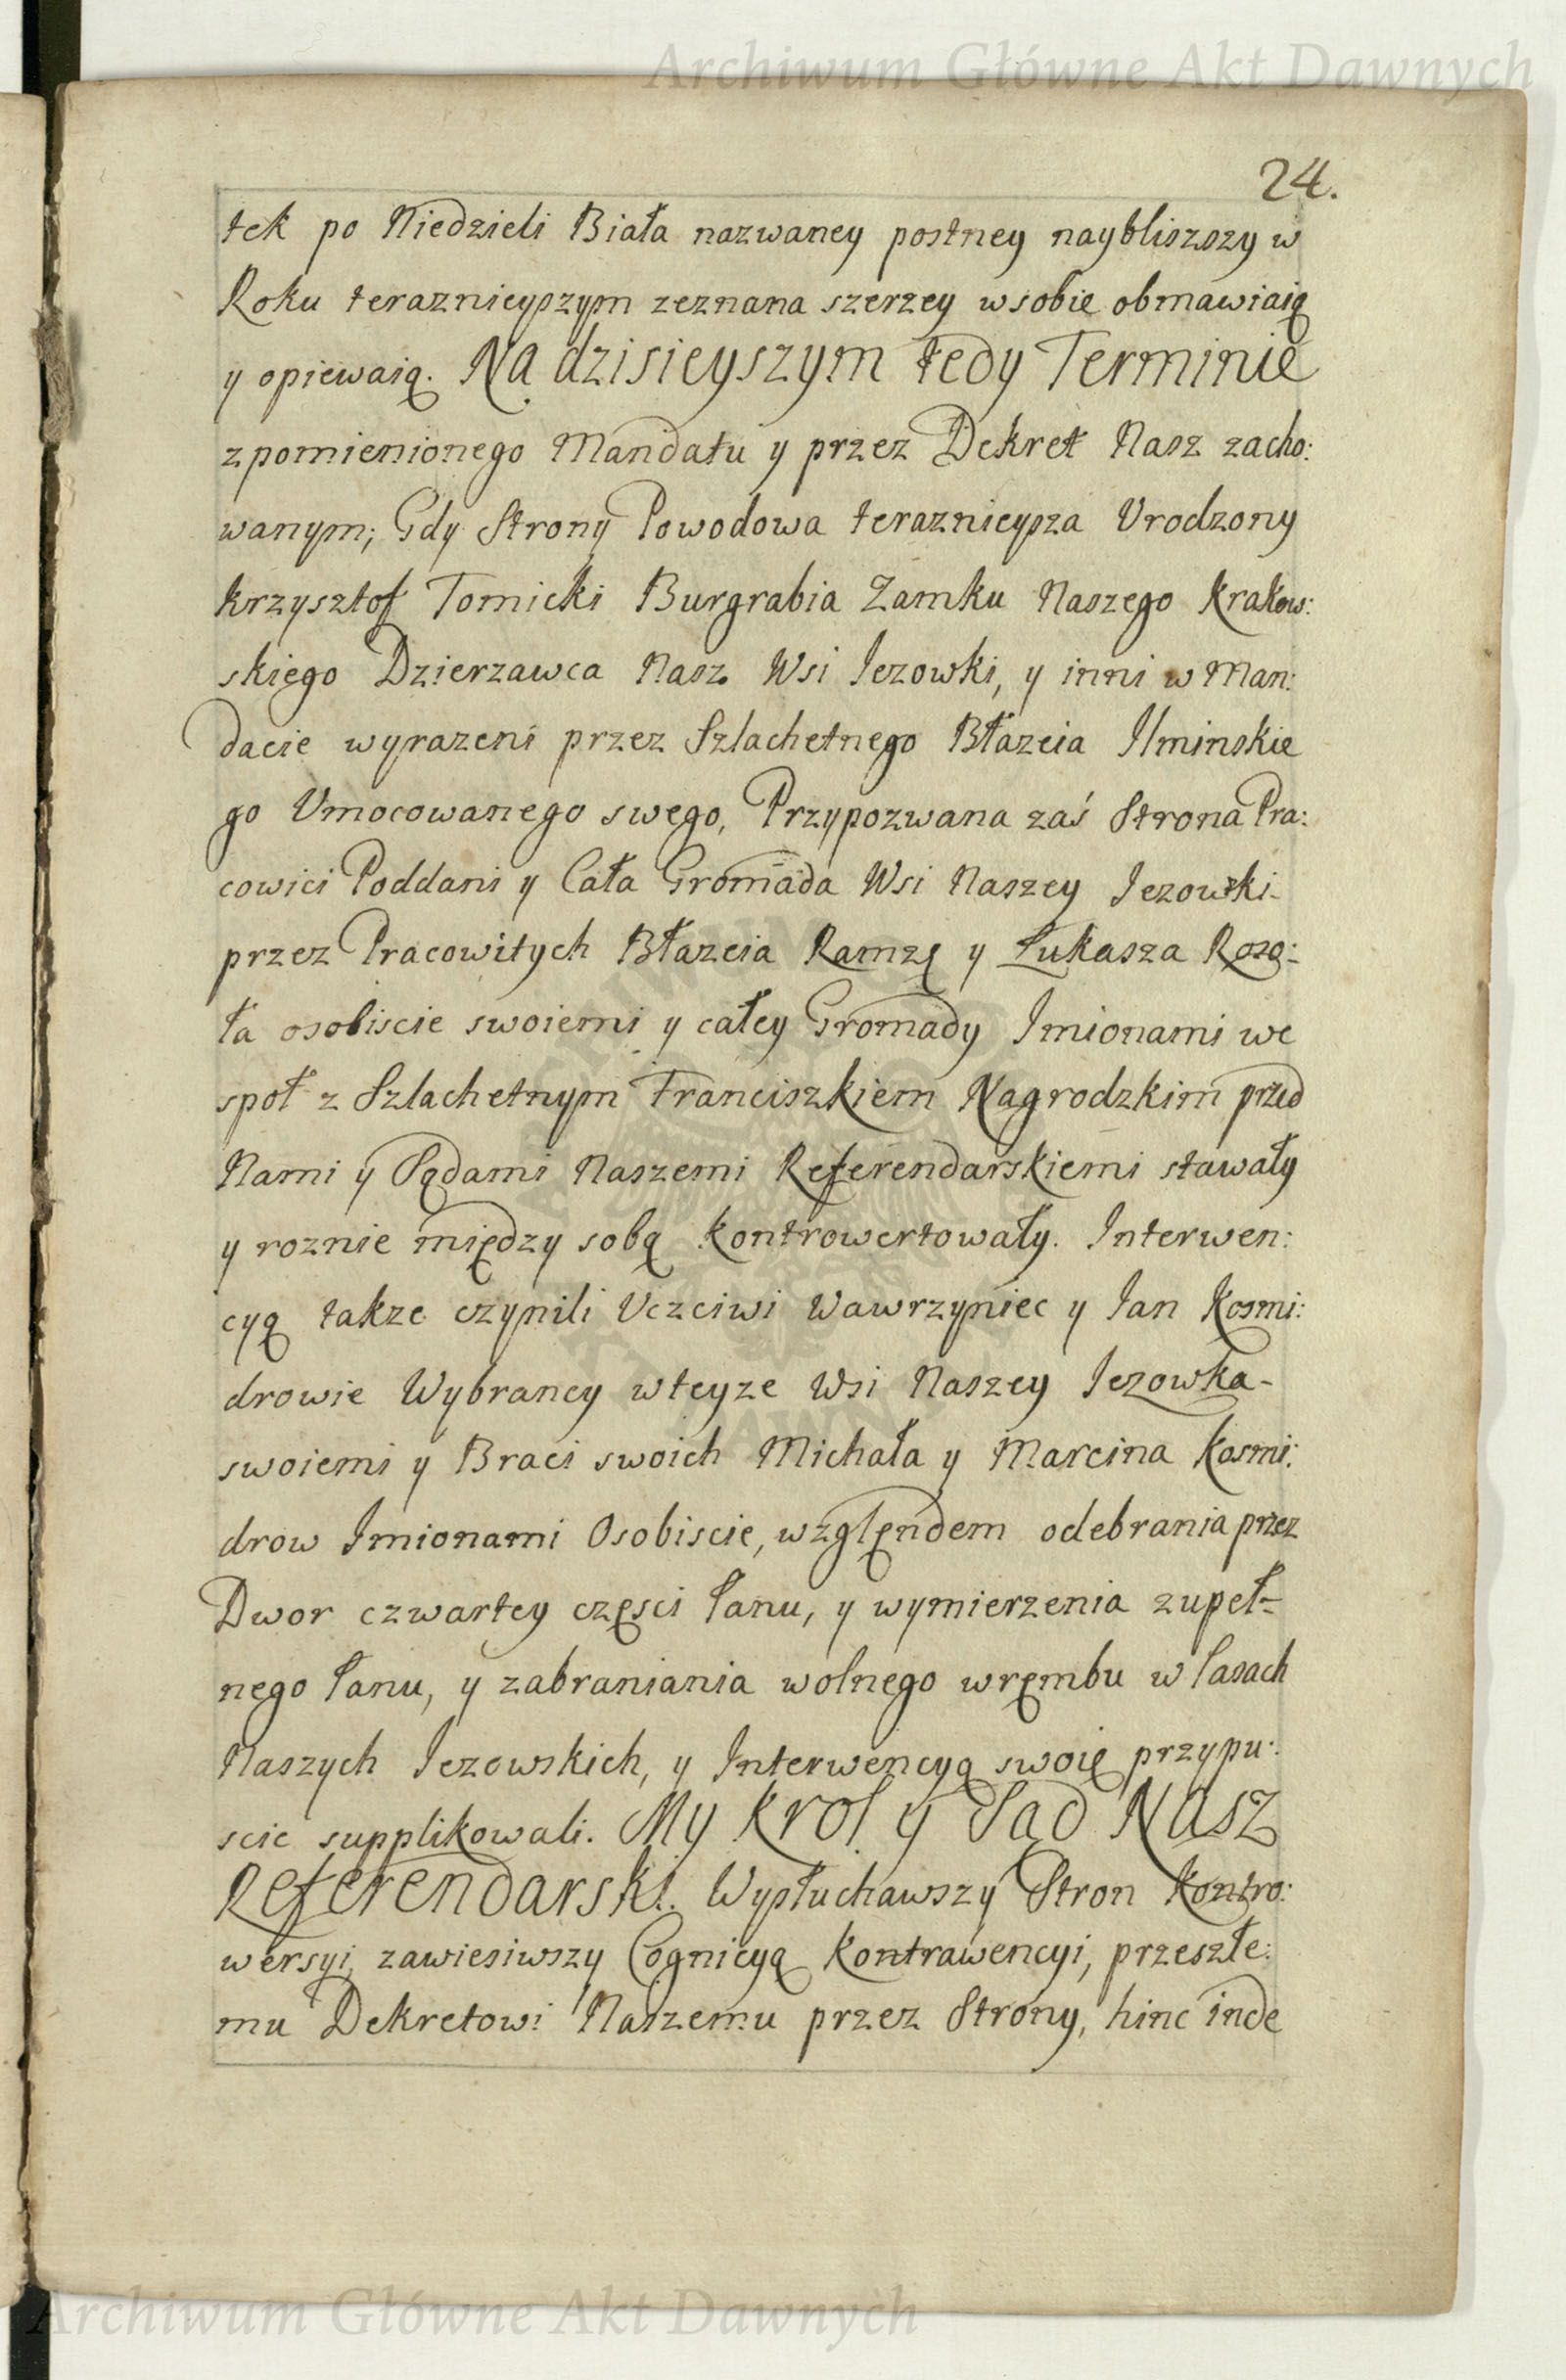 Archiwum Główne Akt Dawnych
24.
tek po Niedzieli Biała nazwaney postney naybliszszy w
Roku teraznieyszym zeznana szerzey w sobie obmawiaią
y opiewaią. Na dzisieyszym tedy Terminie
z pomienionego Mandatu y przez Dekret Nasz zacho:
wanym; Gdy Strony Powodowa teraznieysza Vrodzony
Krzysztof Tomicki Burgrabia Zamku Naszego Krakow:
skiego Dzierzawca Nasz Wsi Iezowki, y inni w Man:
dacie wyrazeni przez Szlachetnego Błazeia Ilminskie
go Vmocowanego swego, Przypozwana zaś Strona Pra:
cowici Poddani y Cała Gromada Wsi Naszey Iezowski-
przez Pracowitych Błazeia Ramzę y Łukasza Roso:
ła osobiscie swoiemi y całey Gromady Imionami we
społ z Szlachetnym Franciszkiem Nagrodzkim przed
Nami y Sądami Naszemi Referendarskiemi stawały
y roznie między sobą kontrowertowały. Interwen:
cyą takze czynili Vczciwi Wawrzyniec y Ian Kosmi:
drowie Wybrancy w teyze Wsi Naszey Iezowka-
swoiemi y Braci swoich Michała y Marcina Kosmi:
drow Imionami Osobiscie, względem odebrania przez
Dwor czwartey częsci łanu, y wymierzenia zupeł=
nego łanu, y zabraniania wolnego wrembu w lasach
Naszych Iezowskich, y Interwencyą swoię przypu:
scic supplikowali. My Krol y Sąd Nasz
Referendarski. Wysłuchawszy Stron Kontro:
wersyi, zawiesiwszy Cognicyą Kontrawencyi, przeszłe:
mu Dekretowi Naszemu przez Strony, hinc inde
Archiwum Główne Akt Dawnych